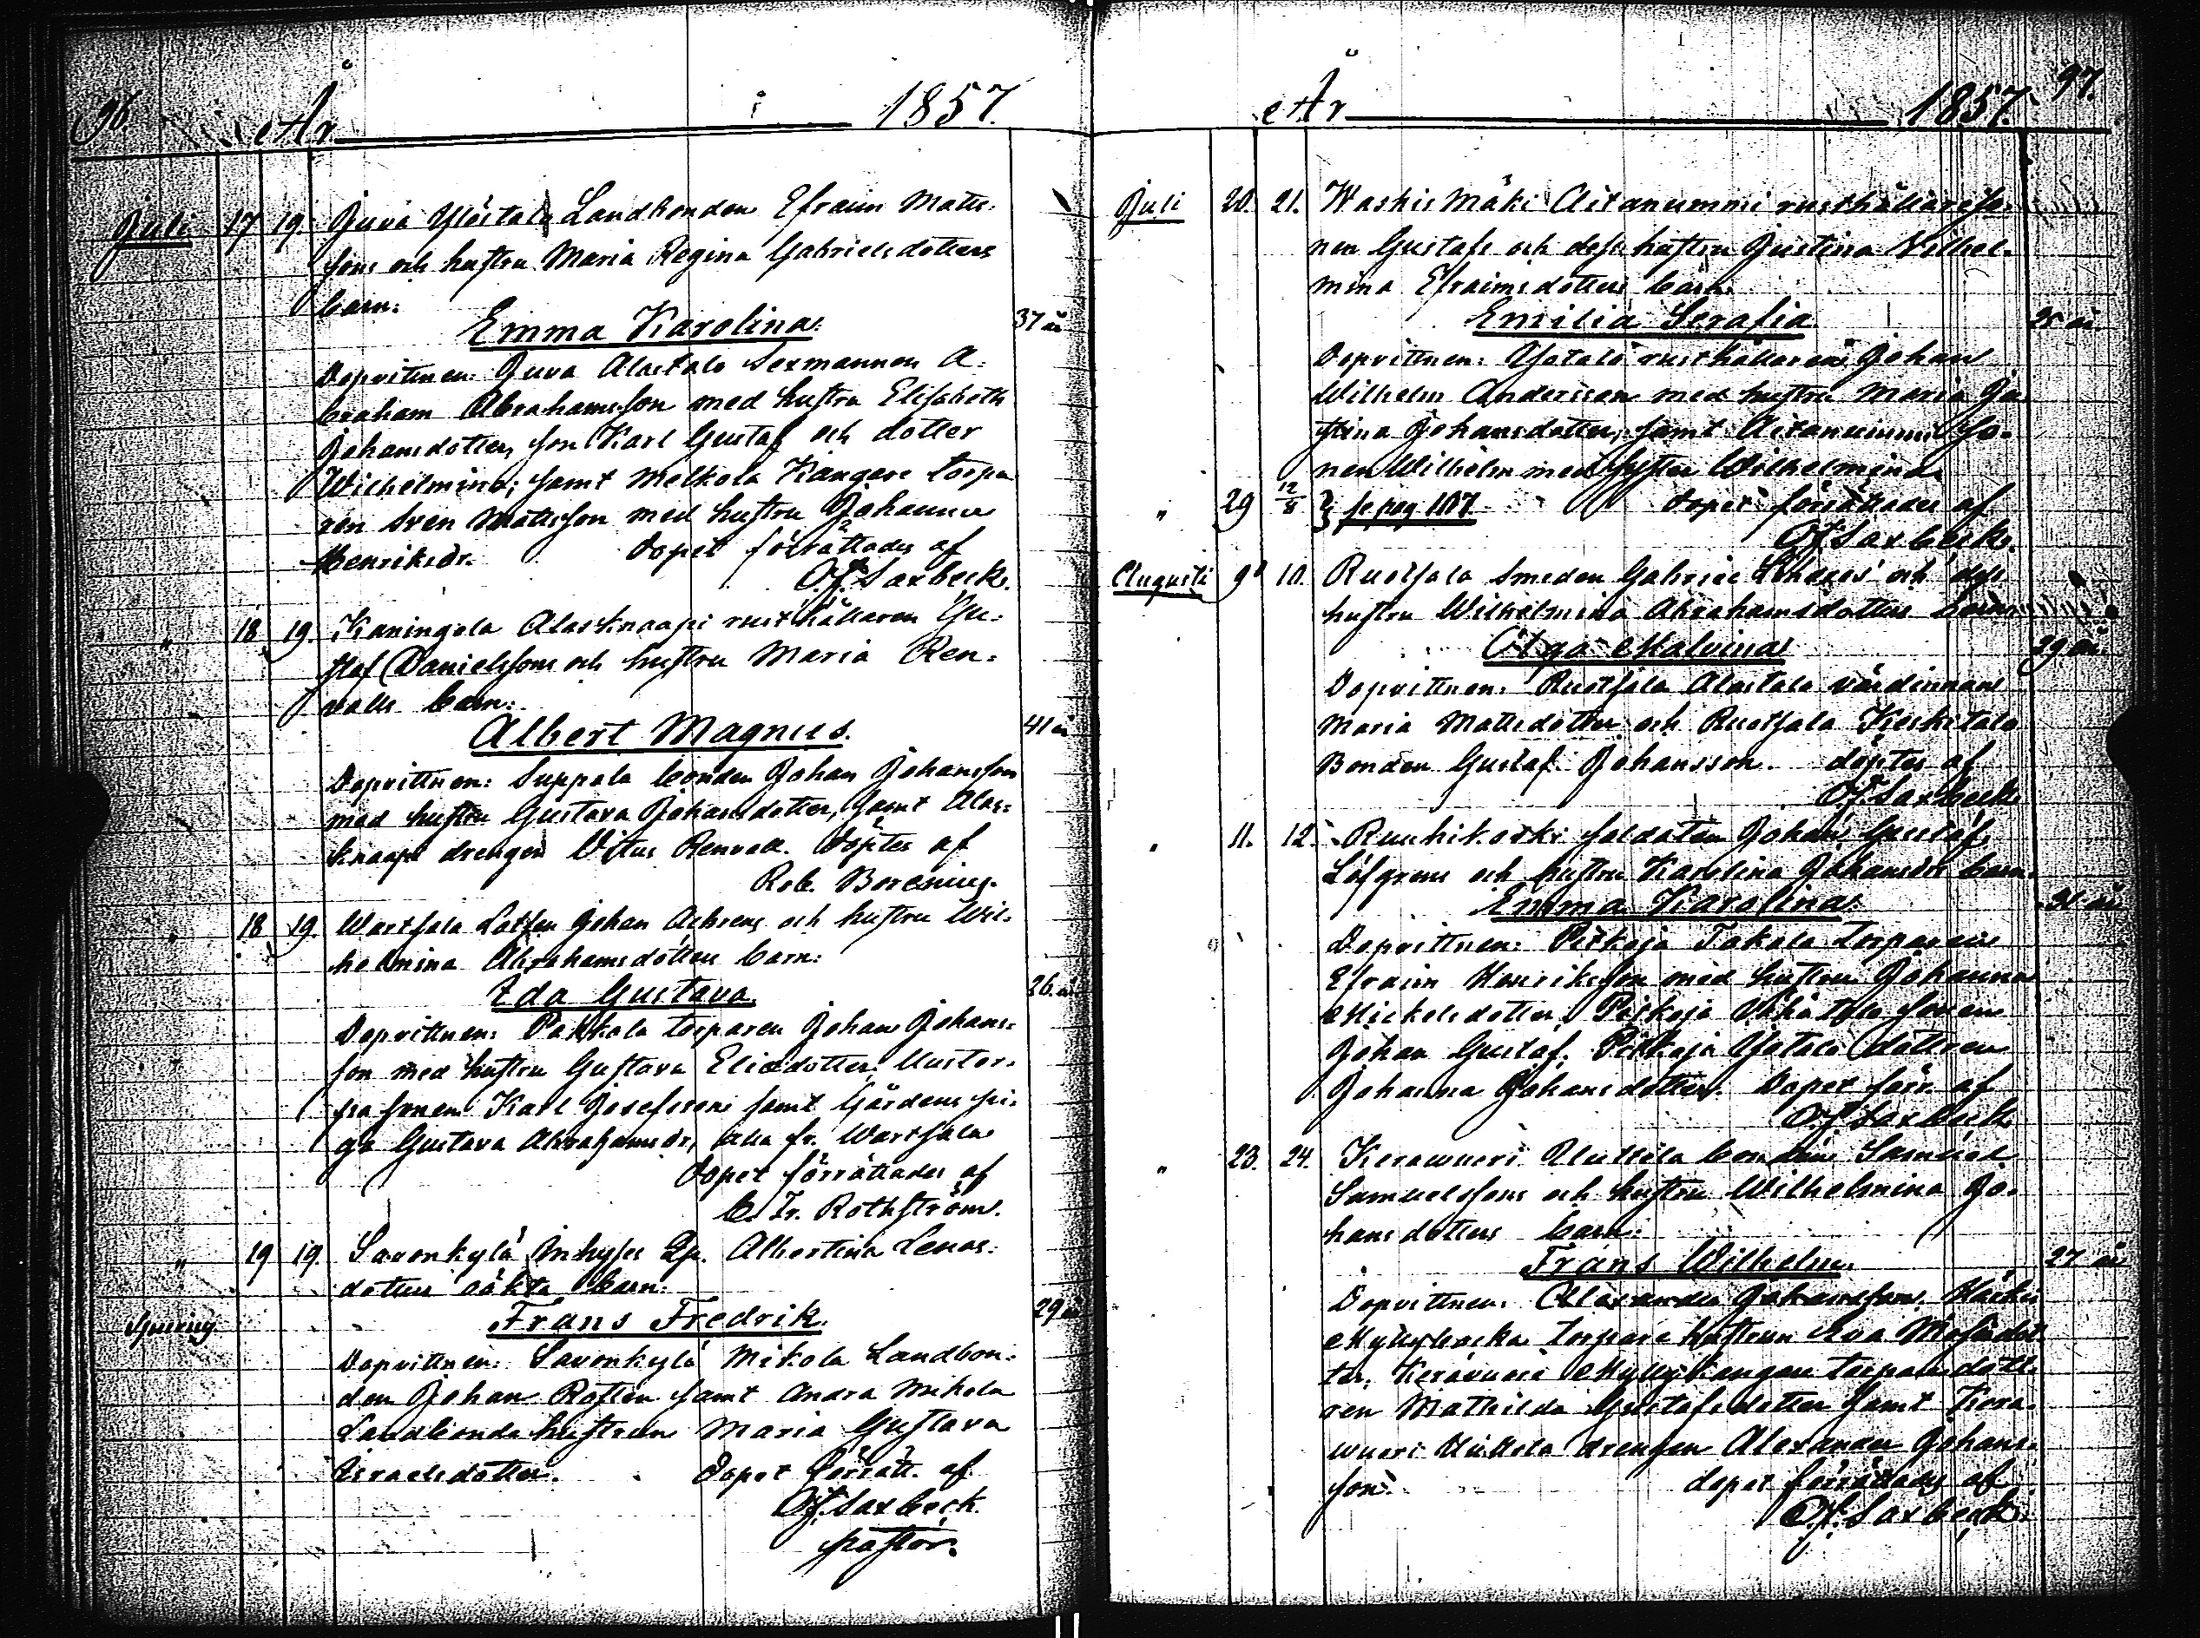 96.
År 1857.
Juli 17 19. Juva Yliskala Landbonden Efraim Matts-
sons och hustru Maria Regina Gabrielsdotters
barn:
Emma Karolina. 37 år
Dopvittnen: Juva Alastalo Sexmannen A-
braham Abrahamsson med hustru Elisabeth
Johansdotter, son Karl Gustaf och dotter
Wilhelmina; samt Melkola Kangare torpa
ren Sven Mattsson med hustru Johanna
Henriksdr. Dopet förrättades af
O.F. Saxbeck.
" 18 19. Kaningola Alasknaapi rusthållaren Gu-
staf Danielssons och hustru Maria Ren-
valls barn:
Albert Magnus. 41 år
Dopvittnen: Suppala bonden Johan Johansson
med hustru Gustava Johansdotter, samt Alas-
knaapi drengen Vitus Renvall. Döptes af
Rob. Borenius.
" 18 19. Wartsala Lotsen Johan Achrens och hustru Wil-
helmina Abrahamsdotters barn:
Ida Gustava. 26 år
Dopvittnen: Pakkala torparen Johan Johans-
son med hustru Gustava Eliedotter,
sonen Karl Josefsson samt Gårdens pi-
ga Gustava Abrahamsdr, alla fr. Wartsala
Dopet förrättades af
C. Fr. Rothström.
" 19 19. Savonkylä Inhyses Qp. Albertina Lenas-
dotters oäkta barn:
Frans Fredrik. 29 år
Dopvittnen: Savonkylä Mikola Landbon-
den Johan Rosten samt Andra Mikola
Landbonde hustrun Maria Gustava
Israelsdotter. Dopet förrätt. af
O.F. Saxbeck.
pastor.
97.
År 1857.
Juli 20. 21. Waskis Mäki Aitanummi rusthållareso-
nen Gustafs och dess hustru Justina Vilhel-
mina Efraimsdotters barn:
Emilia Serafia 25 år
Dopvittnen: Ylotalo rusthållaren Johan
Wilhelm Andersson med hustru Maria Ju
stina Johansdotter, samt Aitanummi So-
nen Wilhelm med syster Wilhelmina.
" 29 12/8 se pag 107. Dopet förrättades af
O.F. Saxbeck.
Augusti 9 10. Ruotsala Smeden Gabriel och dess
hustru Wilhelmina Abrahamsdotters barn
Olga Malvina 29 år
Dopvittnen: Ruotsala Alastalo värdinnan
Maria Mattsdotter och Ruotsala Keskitalo
Bonden Gustaf Johansson. döptes af
O.F. Saxbeck
" 11. 12. Ruuhikoski soldaten Johan Gustaf
Löfgrens och hustru Karolina Johansdrs barn.
Emma Karolina. 31 år
Dopvittnen: Pitkoja Takala torparen
Efraim Henriksson med hustru Johanna
Mickelsdotter, Pitkoja Vähätalo sonen
Johan Gustaf, Pitkoja Ylotalo dottren
Johanna Johansdotter. Dopet förr. af
O.F. Saxbeck
" 23. 24. Kerawuori Uuttila bonden Samuel
Samuelssons och hustru Wilhelmina Jo-
hansdotters barn:
Frans Wilhelm. 27 år
Dopvittnen: Alexander Johansson,
torpare hustrun Eva
ter, Keravuori Myllykangare torpare dott-
ren Mathilda Gustafsdotter samt Kera-
wuori Uuttila drengen Alexander Johans-
son. dopet förrättades af
O.F. Saxbeck.